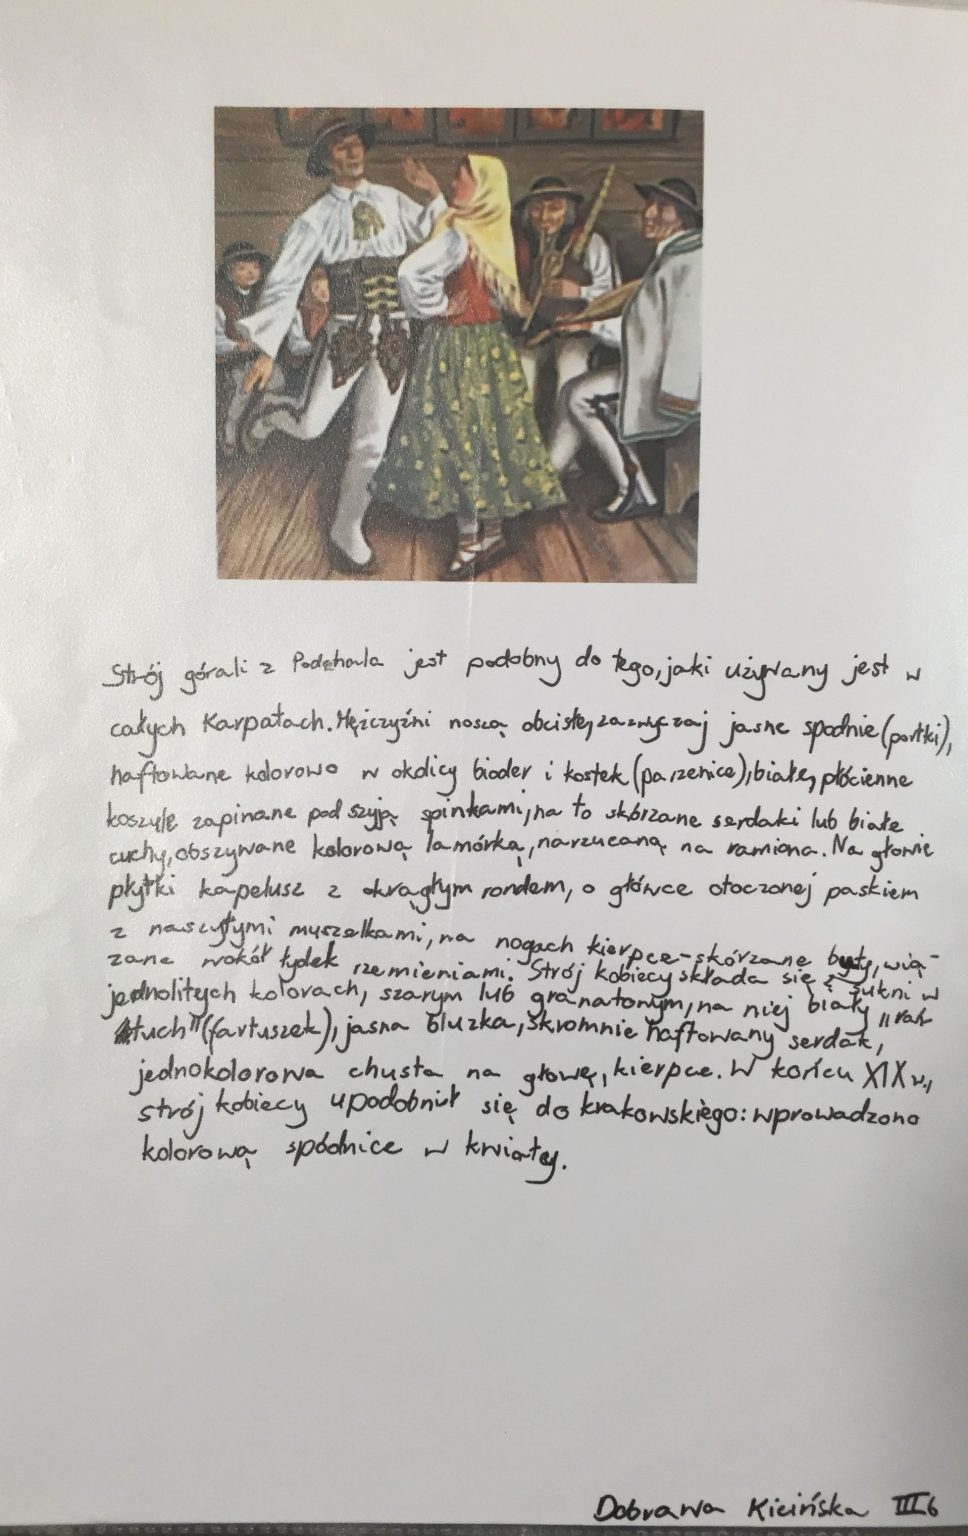 Strój górali z Podchala jest podobny do tego, jaki używany jest w
całych Karpatach. Mężczyźni noszą obcisłe, zazwyczaj jasne spodnie (portki),
haftowane kolorowo w okolicy bioder i kostek (parzenice), białe, płócienne
koszule zapinane pod szyją spinkami, na to skórzane serdaki lub białe
cuchy, obszywane kolorową lamórką, narzucaną na ramiona. Na głowie
płytki kapelusz z okrągłym rondem, o główce otoczonej paskiem
z naszytymi muszelkami, na nogach kierpce - skórzane buty, wią-
zane wokół łydek rzemieniami. Strój kobiecy składa się z sukni w
jednolitych kolorach, szarym lub granatowym, na niej biały "rań-
tuch" (fartuszek), jasna bluzka, skromnie haftowany serdak,
jednokolorowa chusta na głowę, kierpce. W końcu XIX w.,
strój kobiecy upodobnił się do krakowskiego: wprowadzono
kolorową spódnice w kwiaty.
Dobrawa Kicińska III 6